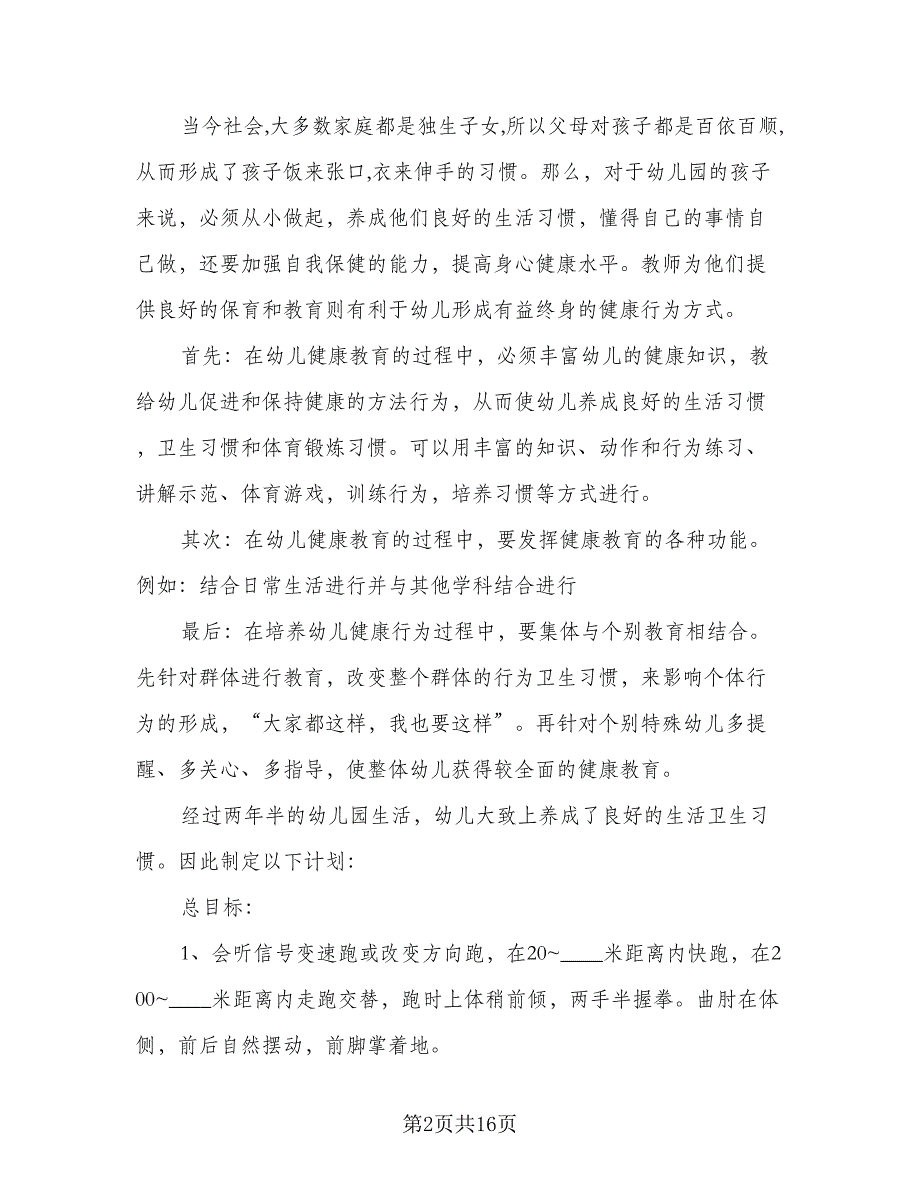 当今社会,大多数家庭都是独生子女,所以父母对孩子都是百依百顺,
从而形成了孩子饭来张口,衣来伸手的习惯。那么，对于幼儿园的孩子
来说，必须从小做起，养成他们良好的生活习惯，懂得自己的事情自
己做，还要加强自我保健的能力，提高身心健康水平。教师为他们提
供良好的保育和教育则有利于幼儿形成有益终身的健康行为方式。
首先：在幼儿健康教育的过程中，必须丰富幼儿的健康知识，教
给幼儿促进和保持健康的方法行为，从而使幼儿养成良好的生活习惯
，卫生习惯和体育锻炼习惯。可以用丰富的知识、动作和行为练习、
讲解示范、体育游戏，训练行为，培养习惯等方式进行。
其次：在幼儿健康教育的过程中，要发挥健康教育的各种功能。
例如：结合日常生活进行并与其他学科结合进行
最后：在培养幼儿健康行为过程中，要集体与个别教育相结合。
先针对群体进行教育，改变整个群体的行为卫生习惯，来影响个体行
为的形成，“大家都这样，我也要这样”。再针对个别特殊幼儿多提
醒、多关心、多指导，使整体幼儿获得较全面的健康教育。
经过两年半的幼儿园生活，幼儿大致上养成了良好的生活卫生习
惯。因此制定以下计划：
总目标：
1、会听信号变速跑或改变方向跑，在20~____米距离内快跑，在2
00~____米距离内走跑交替，跑时上体稍前倾，两手半握拳。曲肘在体
侧，前后自然摆动，前脚掌着地。
第2页共16页